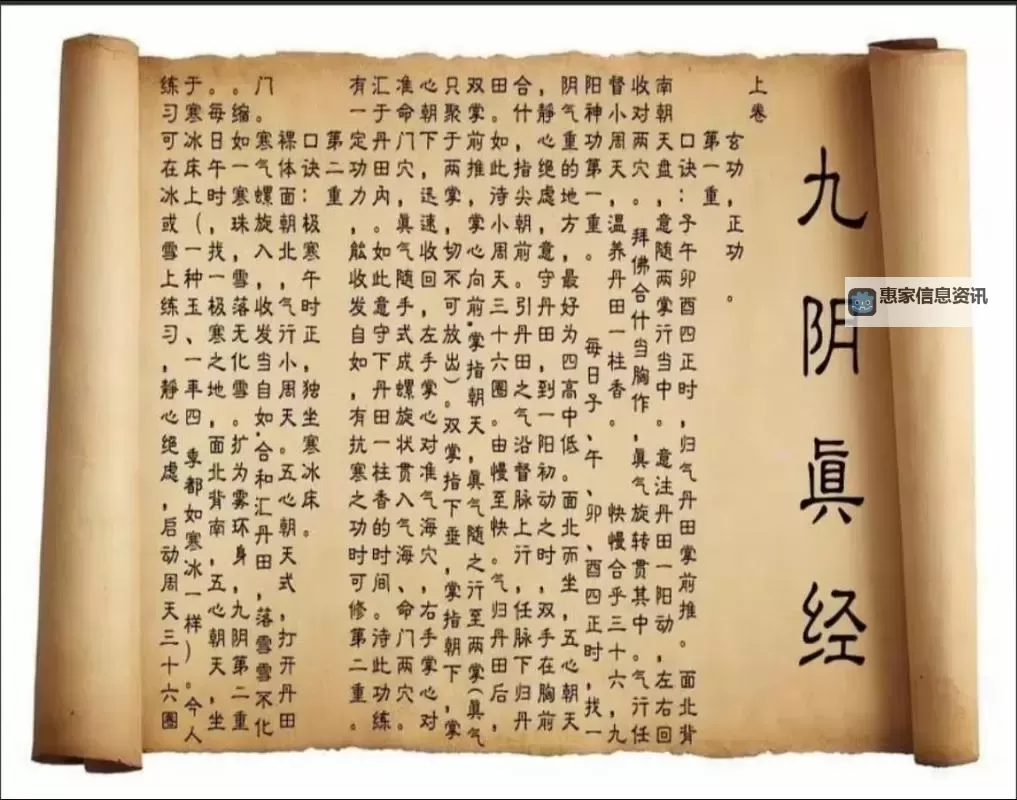 九阴眞经
惠家信息资讯
上卷
玄功,正功。
第一重
口诀:子午卯酉四正时,归气丹田掌前推。面北背
南朝天盘,意随两掌行当中。意注丹田一阳动,左右回
收对两穴。拜佛合什当胸作,眞气旋转贯其中。气行任
督小周天,温养丹田一柱香。快慢合乎三十六,九
阳神功第一重。每日子、午、卯、酉四正时,找一
阴气重的地方,最好为四高中低。面北而坐,五心朝天
,静心绝虑,意守丹田,到一阳初动之时,双手在胸前
合什,指尖朝前。引丹田之气沿督脉上行,任脉下归丹
田。如此待小周天三十六圈。由慢至快。气归丹田后,
双掌前推,掌心向前.掌指朝天,眞气随之行至两掌(眞气
只聚于两掌,切不可放出)。双掌指下垂,掌指朝下,掌
心朝下,迅速收回,左手掌心对准气海穴,右手掌心对
准命门穴,眞气随手式成螺旋状贯入气海、命门两穴。
汇于丹田内。如此意守下丹田一柱香的时间。待此功练
有一定功力,能收发自如,有抗寒之功时可修第二重。
第二重
口诀:极寒午时正,独坐寒冰床。
裸体面朝北,气行小周天。五心朝天式,打开丹田
门寒气螺旋入,收发当自如.合和汇丹田,落雪雪不化
。缩如一寒珠,雪落无化雪。扩为雾环身,九阴第二重
。每日午时,找一极寒之地,面北背南,五心朝天,坐
于寒冰床上(一种玉、一年四季都如寒冰一样)。今人
练习可在冰或雪上练习,静心绝虑,启动周天三十六圈